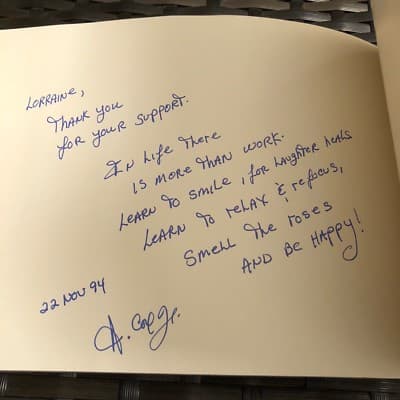 Lorraine,
Thank you
for your support.
In life there
is more than work.
Learn to smile, for laughter heals
Learn to relax & refocus,
Smell the roses
and be happy!
22 Nov 94
A. Jr.